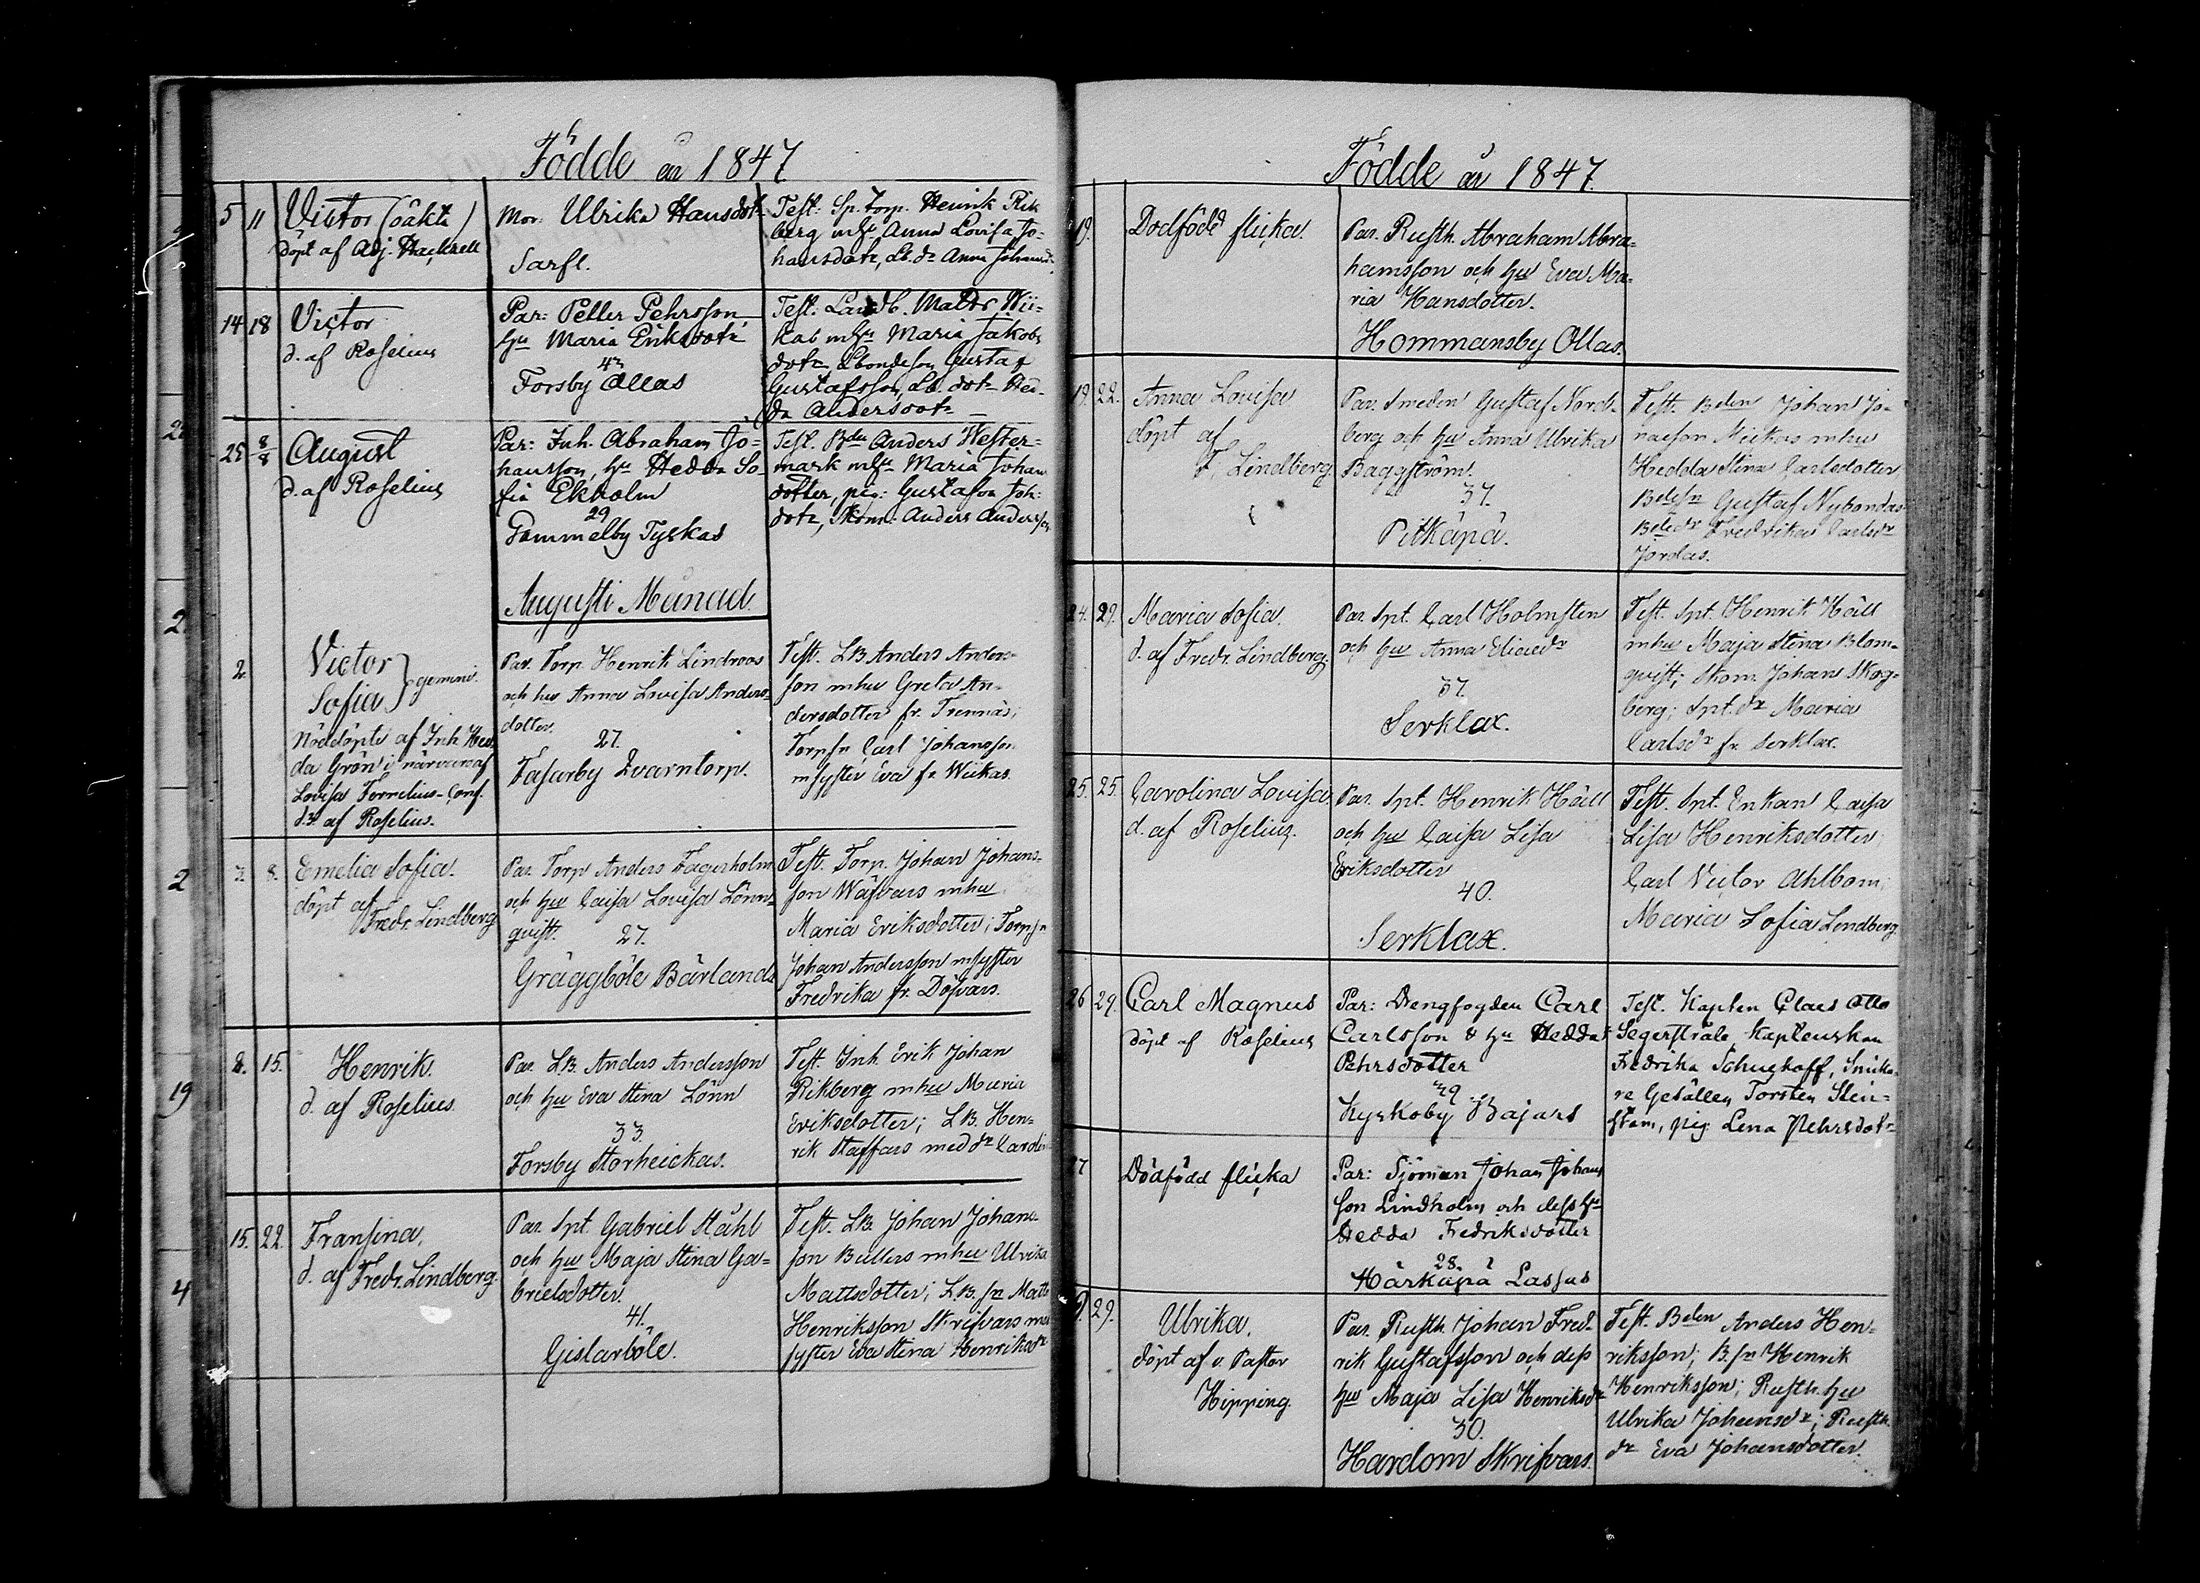 Födde år 1847
5 11 Victor (oäkta)
döpt af Adj. Hacksell
Mor: Ulrika Hansdotr
Sarfl.
Test: Sp. Torp. Henrik Rik
berg mhu Anna Lovisa Jo-
hansdotr, Lb. dr Anna Johansdr
14 18 Victor
d. af Roselius
Par: Petter Pehrsson
hu Maria Eriksdotr
42
Forsby Ollas
Test: Landb. Matts Wii-
kas mhu Maria Jakobs
dotr Lbondeson Gustaf
Gustafsson, Lb. dotr Hed-
da Andersdotr
25 8/8 August
d. af Roselius
Par: Inh. Abraham Jo-
hansson, hu Hedda So-
fia Ekholm
29
Gammelby Tyskas
Test. Bdn Anders Wester-
mark mhu Maria Johans
dotter, pig: Gustafva Joh:
dotr, Skom: Anders Andersson
Augusti Månad.
2. Victor
Sofia } gemini.
Nöddöpte af Inh Hed
da Grön i närvaro af
Lovisa Fornelius - Conf.
d. 3. af Roselius.
Par. Torp. Henrik Lindroos
och hu Anna Lovisa Anders
dotter.
27.
Tasarby Qvarntorp.
Test. LB Anders Anders-
son mhu Greta An-
dersdotter fr. Trennäs;
Torpsn Carl Johansson
msyster Eva fr Wiikas.
3. 8. Emelia Sofia.
döpt af
Fredr. Lindberg
Par. Torp Anders Fagerholm
och hu Caisa Lovisa Lönn-
quist. 27.
Gräggböle Bärlands
Test. Torp. Johan Johans-
son Wäfvars mhu
Maria Eriksdotter; Torpsn
Johan Andersson msyster
Fredrika fr. Döfvars.
8. 15. Henrik.
d. af Roselius
Par. LB. Anders Andersson
och hu Eva Stina Lönn
33.
Forsby Storheickas.
Test. Inh Erik Johan
Rikberg mhu Maria
Eriksdotter; LB. Hen-
rik Staffars med dr Caroli
15. 22. Fransina,
d. af Fredr. Lindberg.
Par. Spt. Gabriel Ståhl
och hu Maja Stina Ga-
brielsdotter.
41.
Gislarböle.
Test. LB Johan Johans-
son Bullers mhu Ulrika
Mattsdotter; LB. sn Matts
Henriksson Skrifvars med
syster Eva Stina Henriksdr
Födde år 1847.
19. Dödfödd flicka.
Par. Rusth. Abraham Abra-
hamsson och hu Eva Ma-
ria Hansdotter.
Hommansby Ollas.
19. 22. Anna Lovisa
döpt af
F. Lindberg.
Par. Smeden Gustaf Nord-
berg och hu Anna Ulrika
Baggström.
37.
Pitkäpä.
Test. Bden Johan Jo-
naeson Miikas mhu
Hedda Stina Carlsdotter
Bdesn Gustaf Nybondas
Bdedr Fredrika Carlsdr
Jordas.
24. 29. Maria Sofia.
d. af Fredr. Lindberg.
Par. Spt. Carl Holmsten
och hu Anna Eliaedr
37.
Serklax.
Test. Spt. Henrik Häll
mhu Maja Stina Blom-
quist; Skom. Johan Skog-
berg; Spt. dr Maria
Carlsdr fr. Serklax.
25. 25. Carolina Lovisa.
d. af Roselius.
Par. Spt. Henrik Häll
och hu Caisa Lisa
Eriksdotter
40.
Serklax.
Test. Spt. Enkan Caisa
Lisa Henriksdotter;
Carl Victor Ahlbom;
Maria Sofia Lindberg.
26 29. Carl Magnus
döpt af Roselius
Par: Drengfogden Carl
Carlsson & hu Hedda
Pehrsdotter
39
Kyrkoby Bajars
Test. Kapten Claes Otto
Segerstråle, Kaptenskan
Fredrika Schughoff, Snicka-
re Gesällen Torsten Sten-
ström, pig Lena Pehrsdotr
27 Dödfödd flicka
Par: Sjöman Johan Johans
son Lindholm och dess hu
Hedda Fredriksdotter
28.
Härkäpä Lassas
29. Ulrika.
döpt af v. Pastor
Hipping.
Par. Rusth Johan Fred-
rik Gustafsson och dess
hu Maja Lisa Henriksdr
30.
Hardom Skrifvars.
Test. Bden Anders Hen-
riksson; B. sn Henrik
Henriksson; Rusth. hu
Ulrika Johansdr; Rusth.
dr Eva Johansdotter.